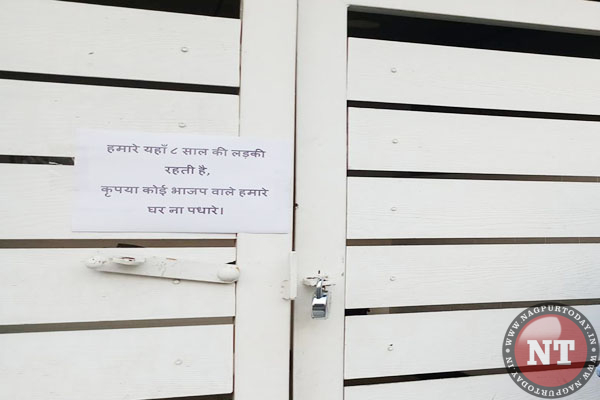 हमारे यहाँ ८ साल की लड़की
रहती है,
कृपया कोई भाजप वाले हमारे
घर ना पधारे।
WWW.NAGPURTODAY.IN
NT
WWW.NAGPURTODAY.IN